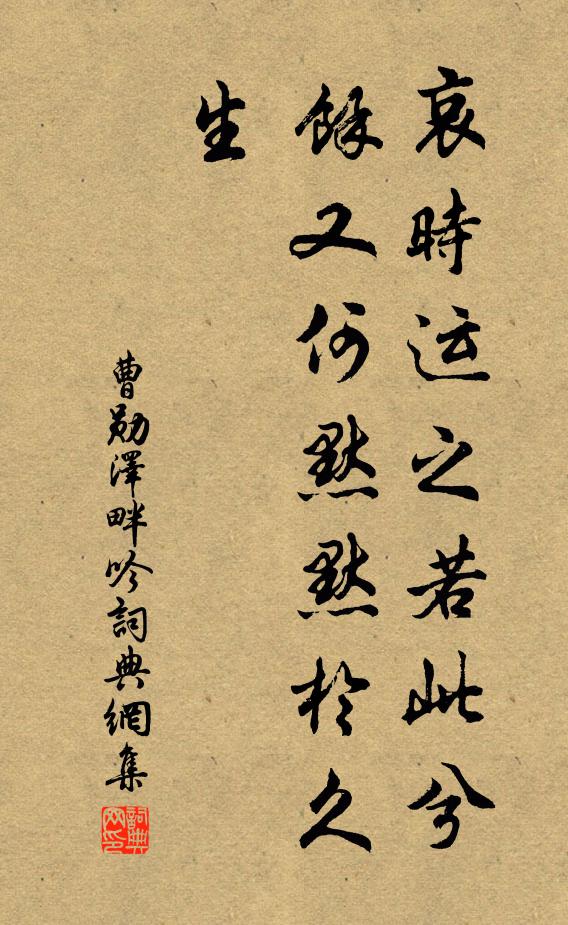 哀時运之若此兮
餘又何默默於久
生
曹勛澤畔吟詞典網集
詞典
网印